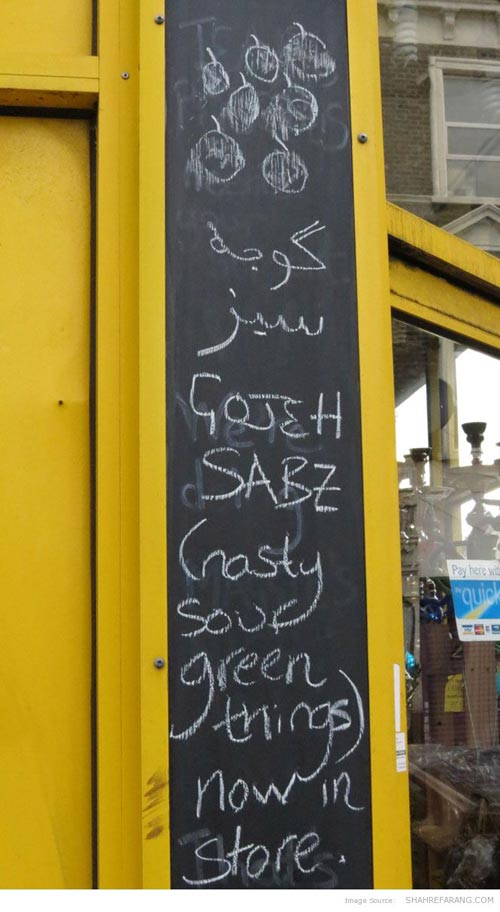 گوجه
سبز
GOJEH
SABZ
(nasty
sour
green
things)
now in
store.
Pay here
quick
Image Source: SHAHREFARANG.COM